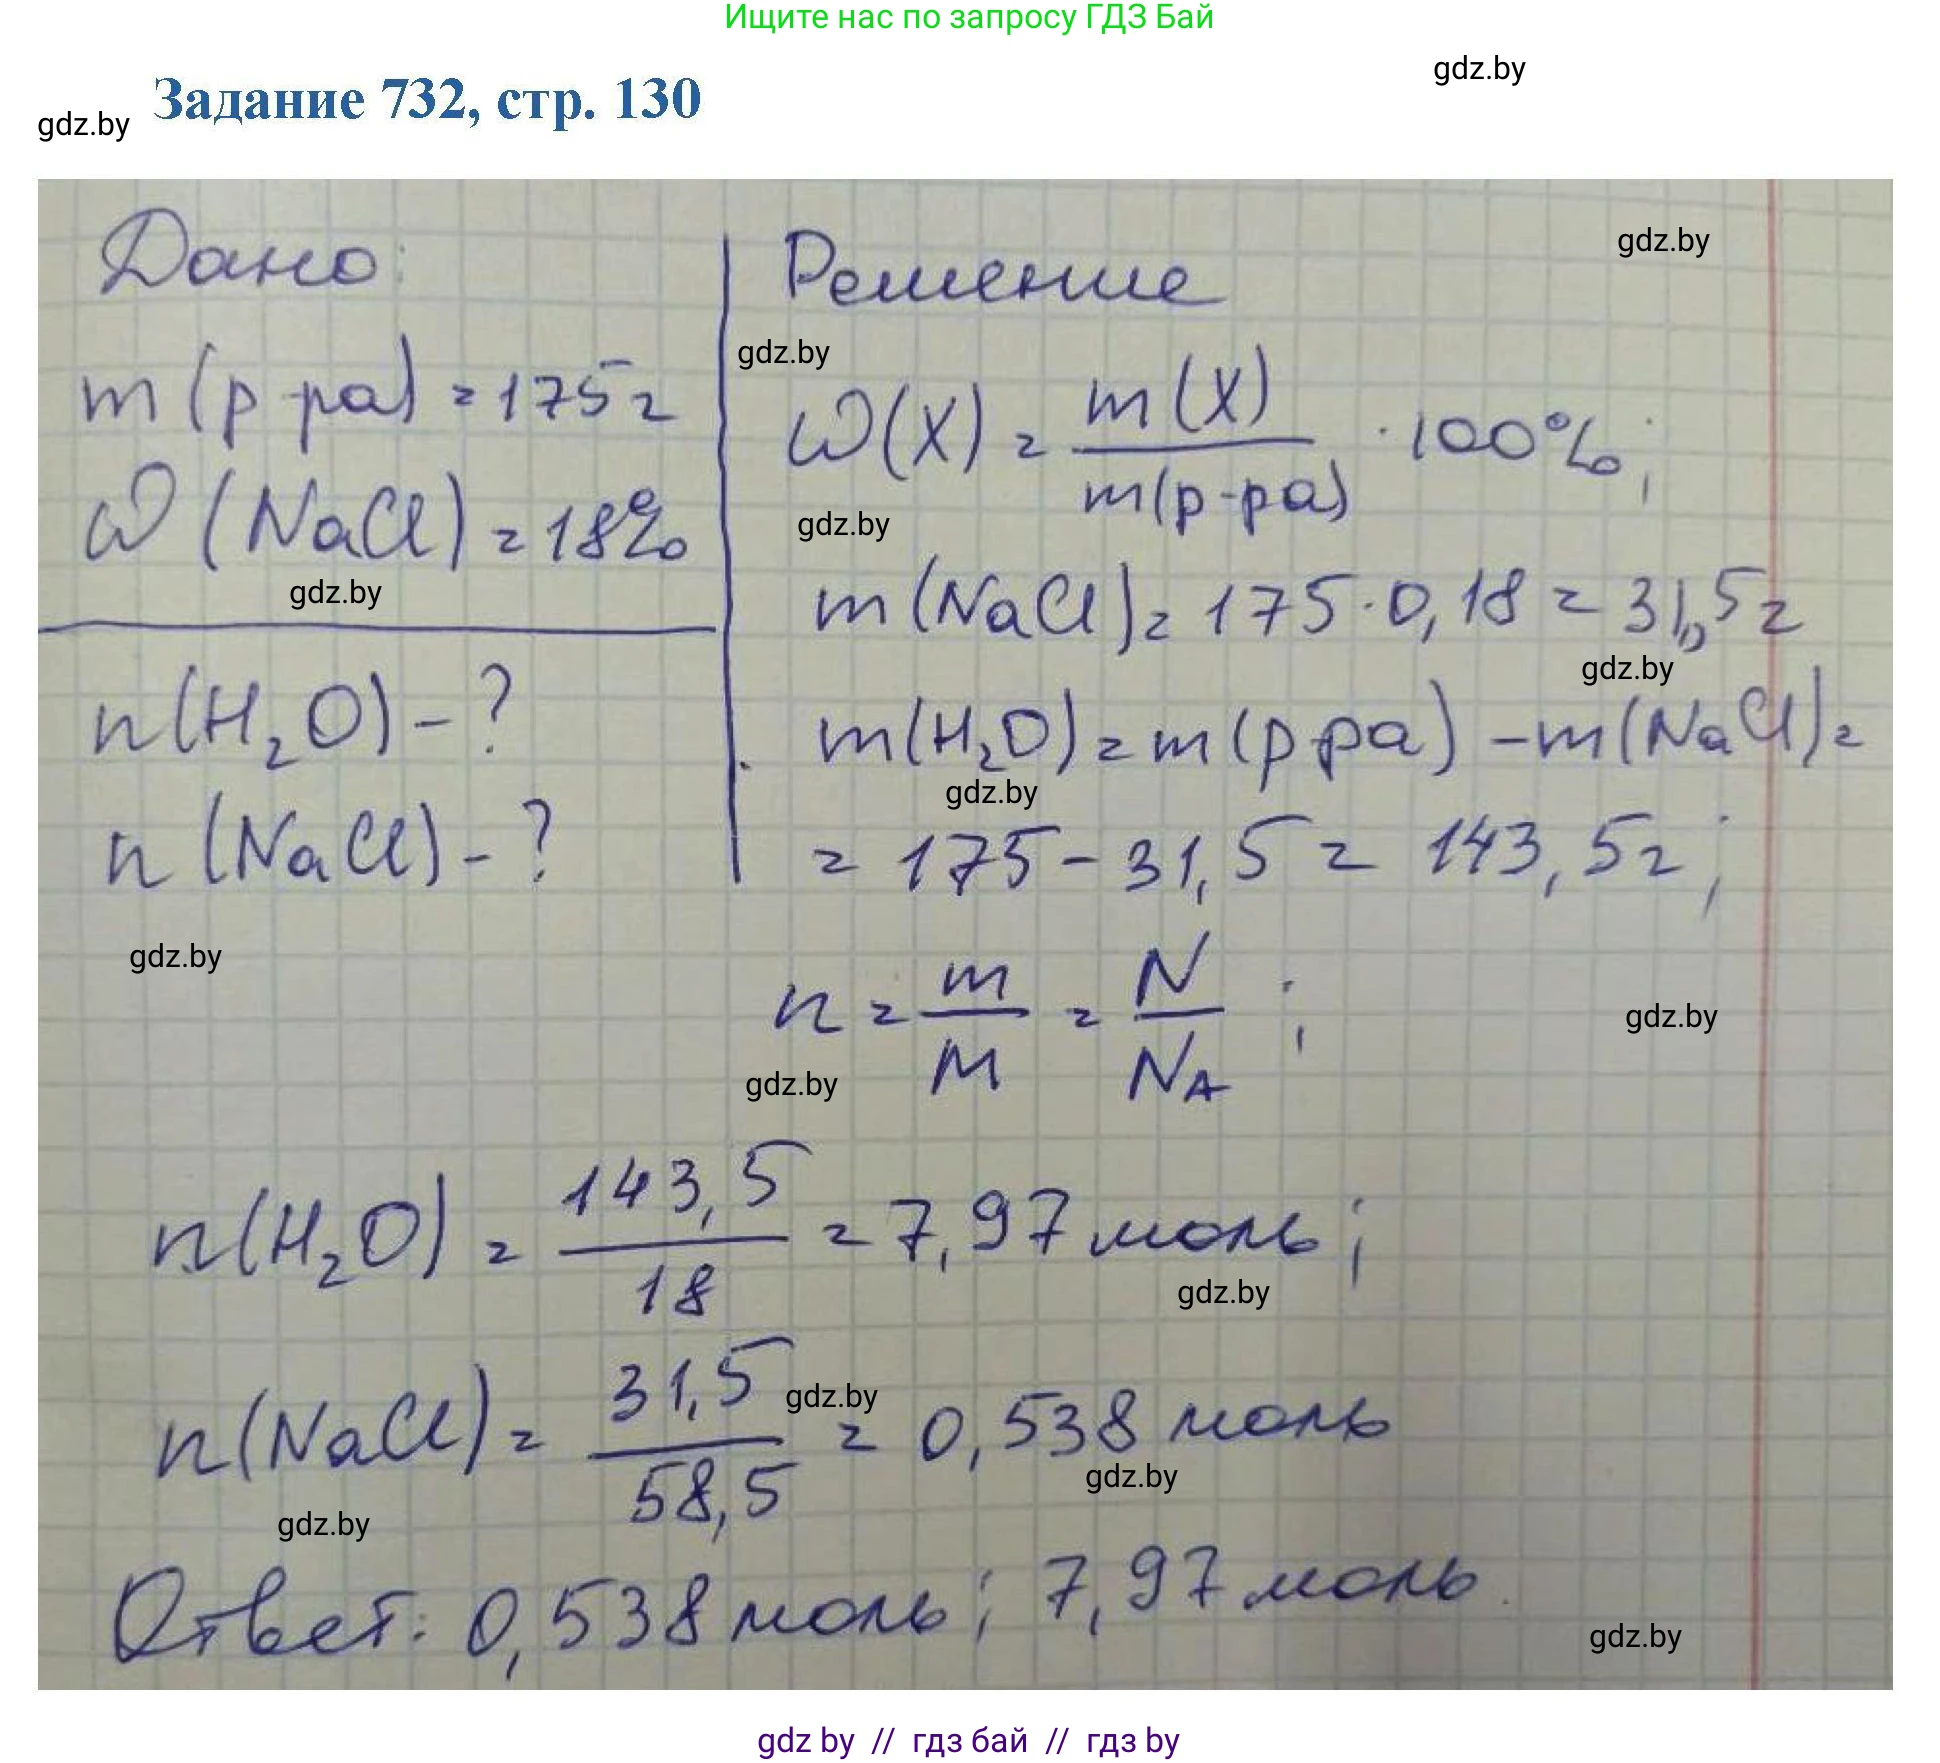 Ищите нас по запросу ГДЗ Бай
gdz.by
Задание 732, стр. 130
gdz.by
Дано:
m (р-ра) = 175 г
ω (NaCl) = 18%
gdz.by
n(H₂O) - ?
n (NaCl) - ?
gdz.by
Решение
gdz.by
gdz.by
ω(X) = m(X) / m(р-ра) · 100%;
gdz.by
m(NaCl) = 175 · 0,18 = 31,5 г
gdz.by
m(H₂O) = m(р-ра) - m(NaCl) =
gdz.by
= 175 - 31,5 = 143,5 г;
n = m / M = N / N_A ;
gdz.by
gdz.by
n(H₂O) = 143,5 / 18 = 7,97 моль;
gdz.by
n(NaCl) = 31,5 / 58,5 = 0,538 моль
gdz.by
gdz.by
gdz.by
Ответ: 0,538 моль; 7,97 моль.
gdz.by
gdz by // гдз бай // гдз by